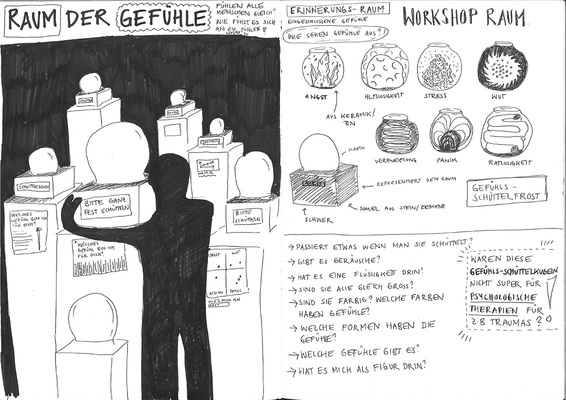 RAUM DER GEFÜHLE
FÜHLEN ALLE
MENSCHEN GLEICH?
WIE FÜHLT ES SICH
AN ZU FÜHLEN?
ERINNERUNGS-RAUM
EINGESCHLOSSENE GEFÜHLE
WIE SEHEN GEFÜHLE AUS?
WORKSHOP RAUM
ANGST
HILFLOSIGKEIT
STRESS
WUT
AUS KERAMIK/
TON
VERZWEIFLUNG
PANIK
RATLOSIGKEIT
REPRÄSENTIERT DEN RAUM
SOCKEL AUS STEIN/ZEMENT
SCHWER
GEFÜHLS-
SCHÜTTELFROST
SCHÜTTELKUGEL
BITTE GANZ
FEST SCHÜTTELN
BITTE
SCHÜTTELN
WELCHES
GEFÜHL BIN ICH
FÜR DICH?
WELCHES
GEFÜHL BIN ICH
FÜR DICH?
ANGST
WUT
PANIK
→ PASSIERT ETWAS WENN MAN SIE SCHÜTTELT?
→ GIBT ES GERÄUSCHE?
→ HAT ES EINE FLÜSSIGKEIT DRIN?
→ SIND SIE ALLE GLEICH GROSS?
→ SIND SIE FARBIG? WELCHE FARBEN
HABEN GEFÜHLE?
→ WELCHE FORMEN HABEN DIE
GEFÜHLE?
→ WELCHE GEFÜHLE GIBT ES?
→ HAT ES MICH ALS FIGUR DRIN?
WÄREN DIESE
GEFÜHLS-SCHÜTTELKUGELN
NICHT SUPER FÜR
PSYCHOLOGISCHE
THERAPIEN FÜR
Z.B TRAUMAS?